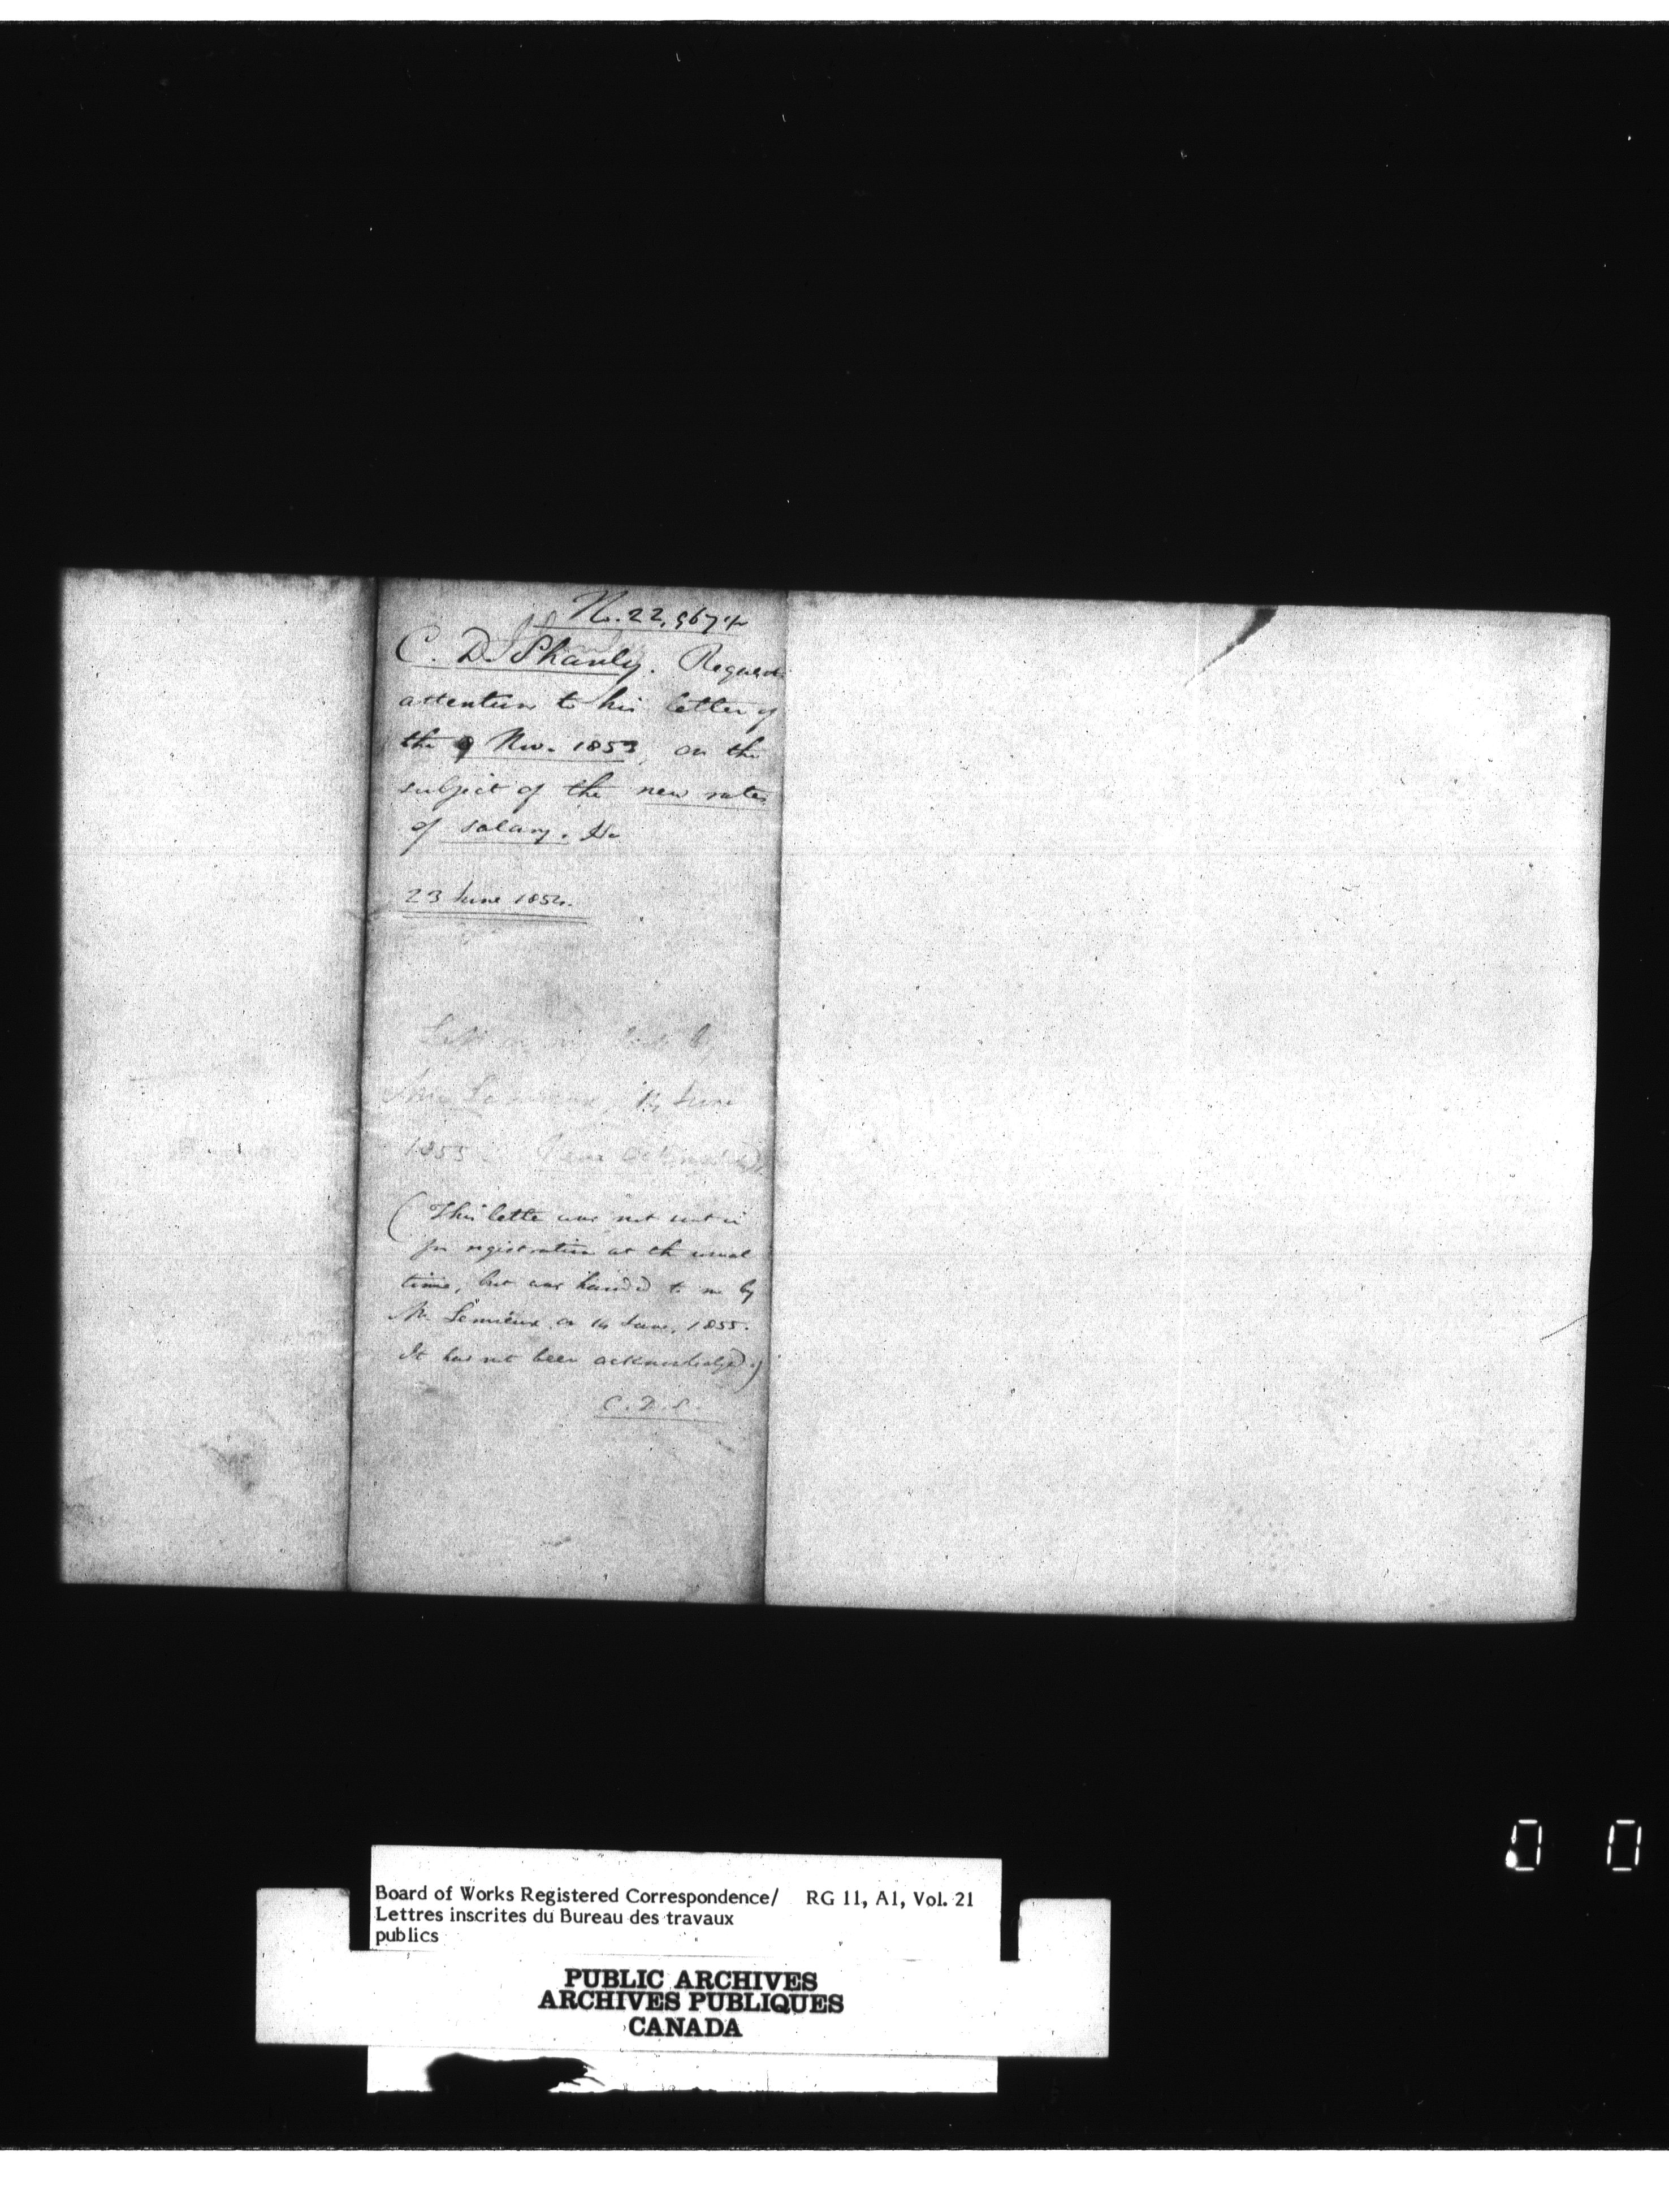 No. 22,967½
C. D. Shanly. Requests
attention to his letter of
the 9 Nov. 1853, on the
subject of the new rates
of salary. &c
23 June 1854.
Mr Lemieux, 14 June
1855
(This letter was not sent in
for registration at the usual
time, but was handed to me by
Mr Lemieux on 14 June, 1855.
It has not been acknowledged.)
C. D. S.
0 0
Board of Works Registered Correspondence/ RG 11, A1, Vol. 21
Lettres inscrites du Bureau des travaux
publics
PUBLIC ARCHIVES
ARCHIVES PUBLIQUES
CANADA